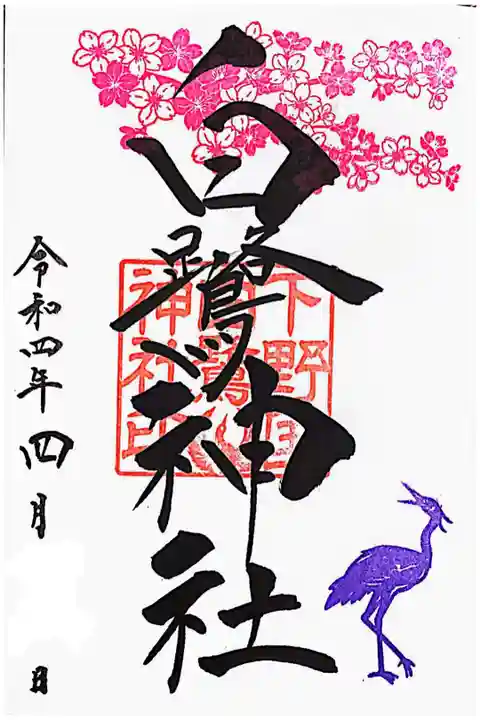 白鷺神社
下野国
白鷺
神社印
令和四年四月 日